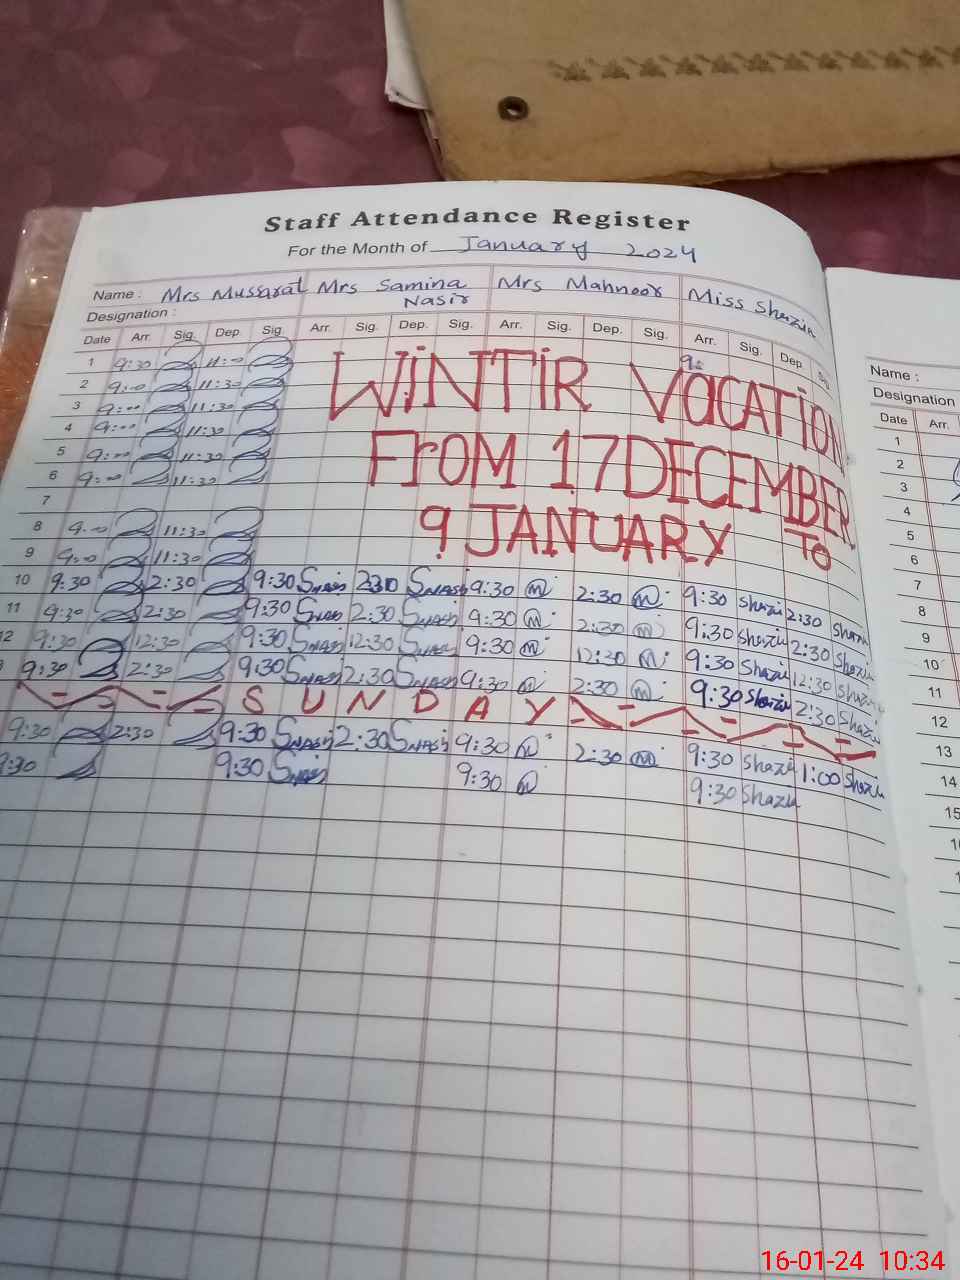 Staff Attendance Register
For the Month of January 2024
Name : Mrs Mussarat Mrs Samina Nasir Mrs Mahnoor Miss Shazia
Designation :
Date Arr. Sig. Dep. Sig. Arr. Sig. Dep. Sig. Arr. Sig. Dep. Sig. Arr. Sig. Dep. Sig.
1 9:30 11:00 9:
2 9:00 11:30
3 9:00 11:30
4 9:00 11:30
5 9:00 11:30
6 9:00 11:30
7
8 9:00 11:30
9 9:00 11:30
WiNTIR VaCATiON
FrOM 17 DECEMBER TO
9 JANUARY
10 9:30 2:30 9:30 2:30 9:30 m 2:30 m 9:30 Shazia 2:30 Shazia
11 9:30 2:30 9:30 2:30 9:30 m 2:30 m 9:30 Shazia 2:30 Shazia
12 9:30 12:30 9:30 12:30 9:30 m 12:30 m 9:30 Shazia 12:30 Shazia
9:30 2:30 9:30 2:30 9:30 m 2:30 m 9:30 Shazia 2:30 Shazia
SUNDAY
9:30 2:30 9:30 2:30 9:30 m 2:30 m 9:30 Shazia 1:00 Shazia
9:30 9:30 9:30 m 9:30 Shazia
Name :
Designation
Date Arr.
1
2
3
4
5
6
7
8
9
10
11
12
13
14
15
16-01-24 10:34